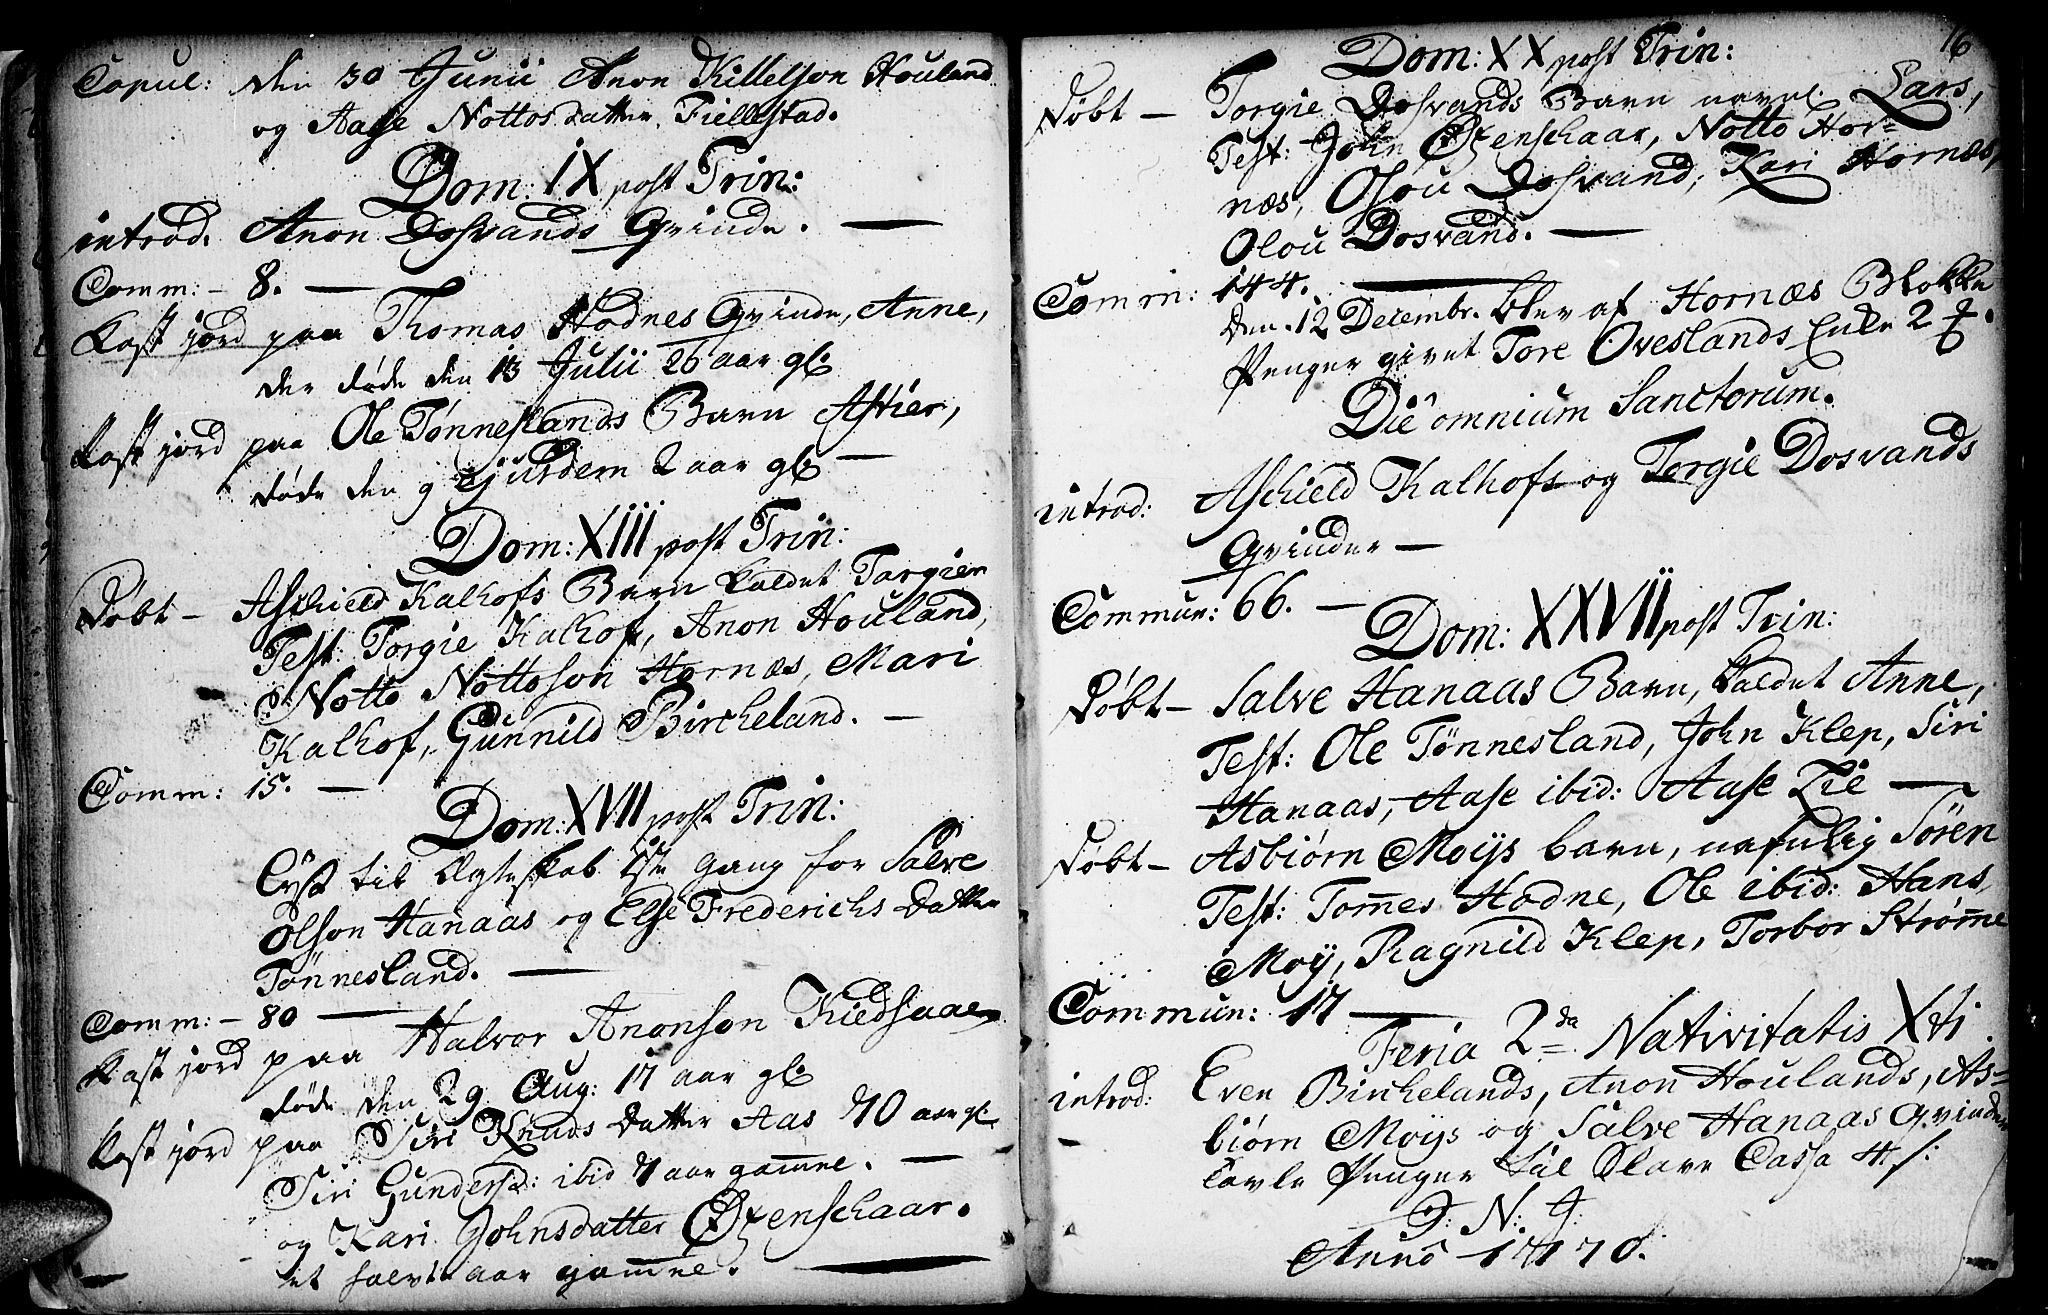 Copul: den 30 Junii Anon Killelson Houland
og Aase Nottos datter Fiellestad.
Dom: IX post Trin:
introd. Anon Dosvands Qvinde. —
Comm: – 8. —
Kast jord paa Thomas Hodnes Qvinde, Anne,
der døde den 13 Julii 26 aar gl:
Kast jord paa Ole Tønneslands Barn Astier,
døde den 9 2 aar gl: —
Dom: XIII post Trin:
Døbt – Aschield Kalhofs Barn kaldet Torgier
Test: Torgie Kalhof, Anon Houland,
Notto Nottoson Hornæs, Mari
Kalhof, Gunnild Bircheland. —
Comm: 15. —
Dom: XVII post Trin:
Lyst til Ægteskab 1ste gang for Salve
Olson Hanaas og Else Frederichs datter
Tønnesland. —
Comm: – 80 —
Kast jord paa Halvor Anonson Kiedsaae
døde den 29 Aug: 17 aar gl:
Kast jord paa Siri Knuds datter Aas 70 aar gl:
Siri Gundersd: ibid 7 aar gamle. —
og Kari Johnsdatter Øxenschaar.
et halvt aar gamle. —
16
Dom: XX post Trin:
Døbt — Torgie Dosvands Barn navnl. Lars,
Test: John Øxenschaar, Notto Hor=
næs, Olou Dosvand, Kari Hornæs,
Olou Dosvand. —
Comm: 144. —
Den 12 Decembr. blev af Hornæs Blokke
Penger givet Tore Oveslands Enke 2
Die omnium Sanctorum.
introd: Aschield Kalhofs og Torgie Dosvands
Qvinder —
Commun: 66. —
Dom: XXVII post Trin:
Døbt – Salve Hanaas Barn, kaldet Anne,
Test: Ole Tønnesland, John Klep, Siri
Hanaas, Aase ibid: Aase Lie —
Døbt – Asbiørn Moijs barn, nafnlig Søren
Test: Tom̄es Hodne, Ole ibid: Hans
Moij, Ragnild Klep, Torbor Strøm̄e
Commun: 17 —
Feria 2da Nativitatis Xti.
introd: Even Birchelands, Anon Houlands, As=
biørn Moijs og Salve Hanaas Qvinder
Tavle Penger Cassa
J: N: J:
Anno 1770.